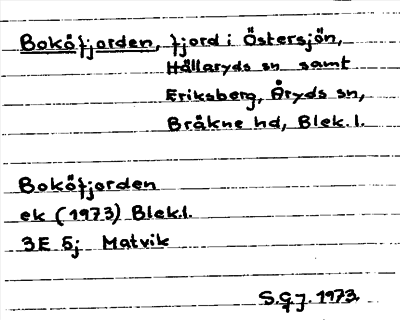 Boköfjorden, fjord i Östersjön,
Hällaryds sn samt
Eriksberg, Åryds sn,
Bräkne hd, Blek. l.
Boköfjorden
ek (1973) Blek. l.
3E 5j Matvik
S.G.J. 1973.